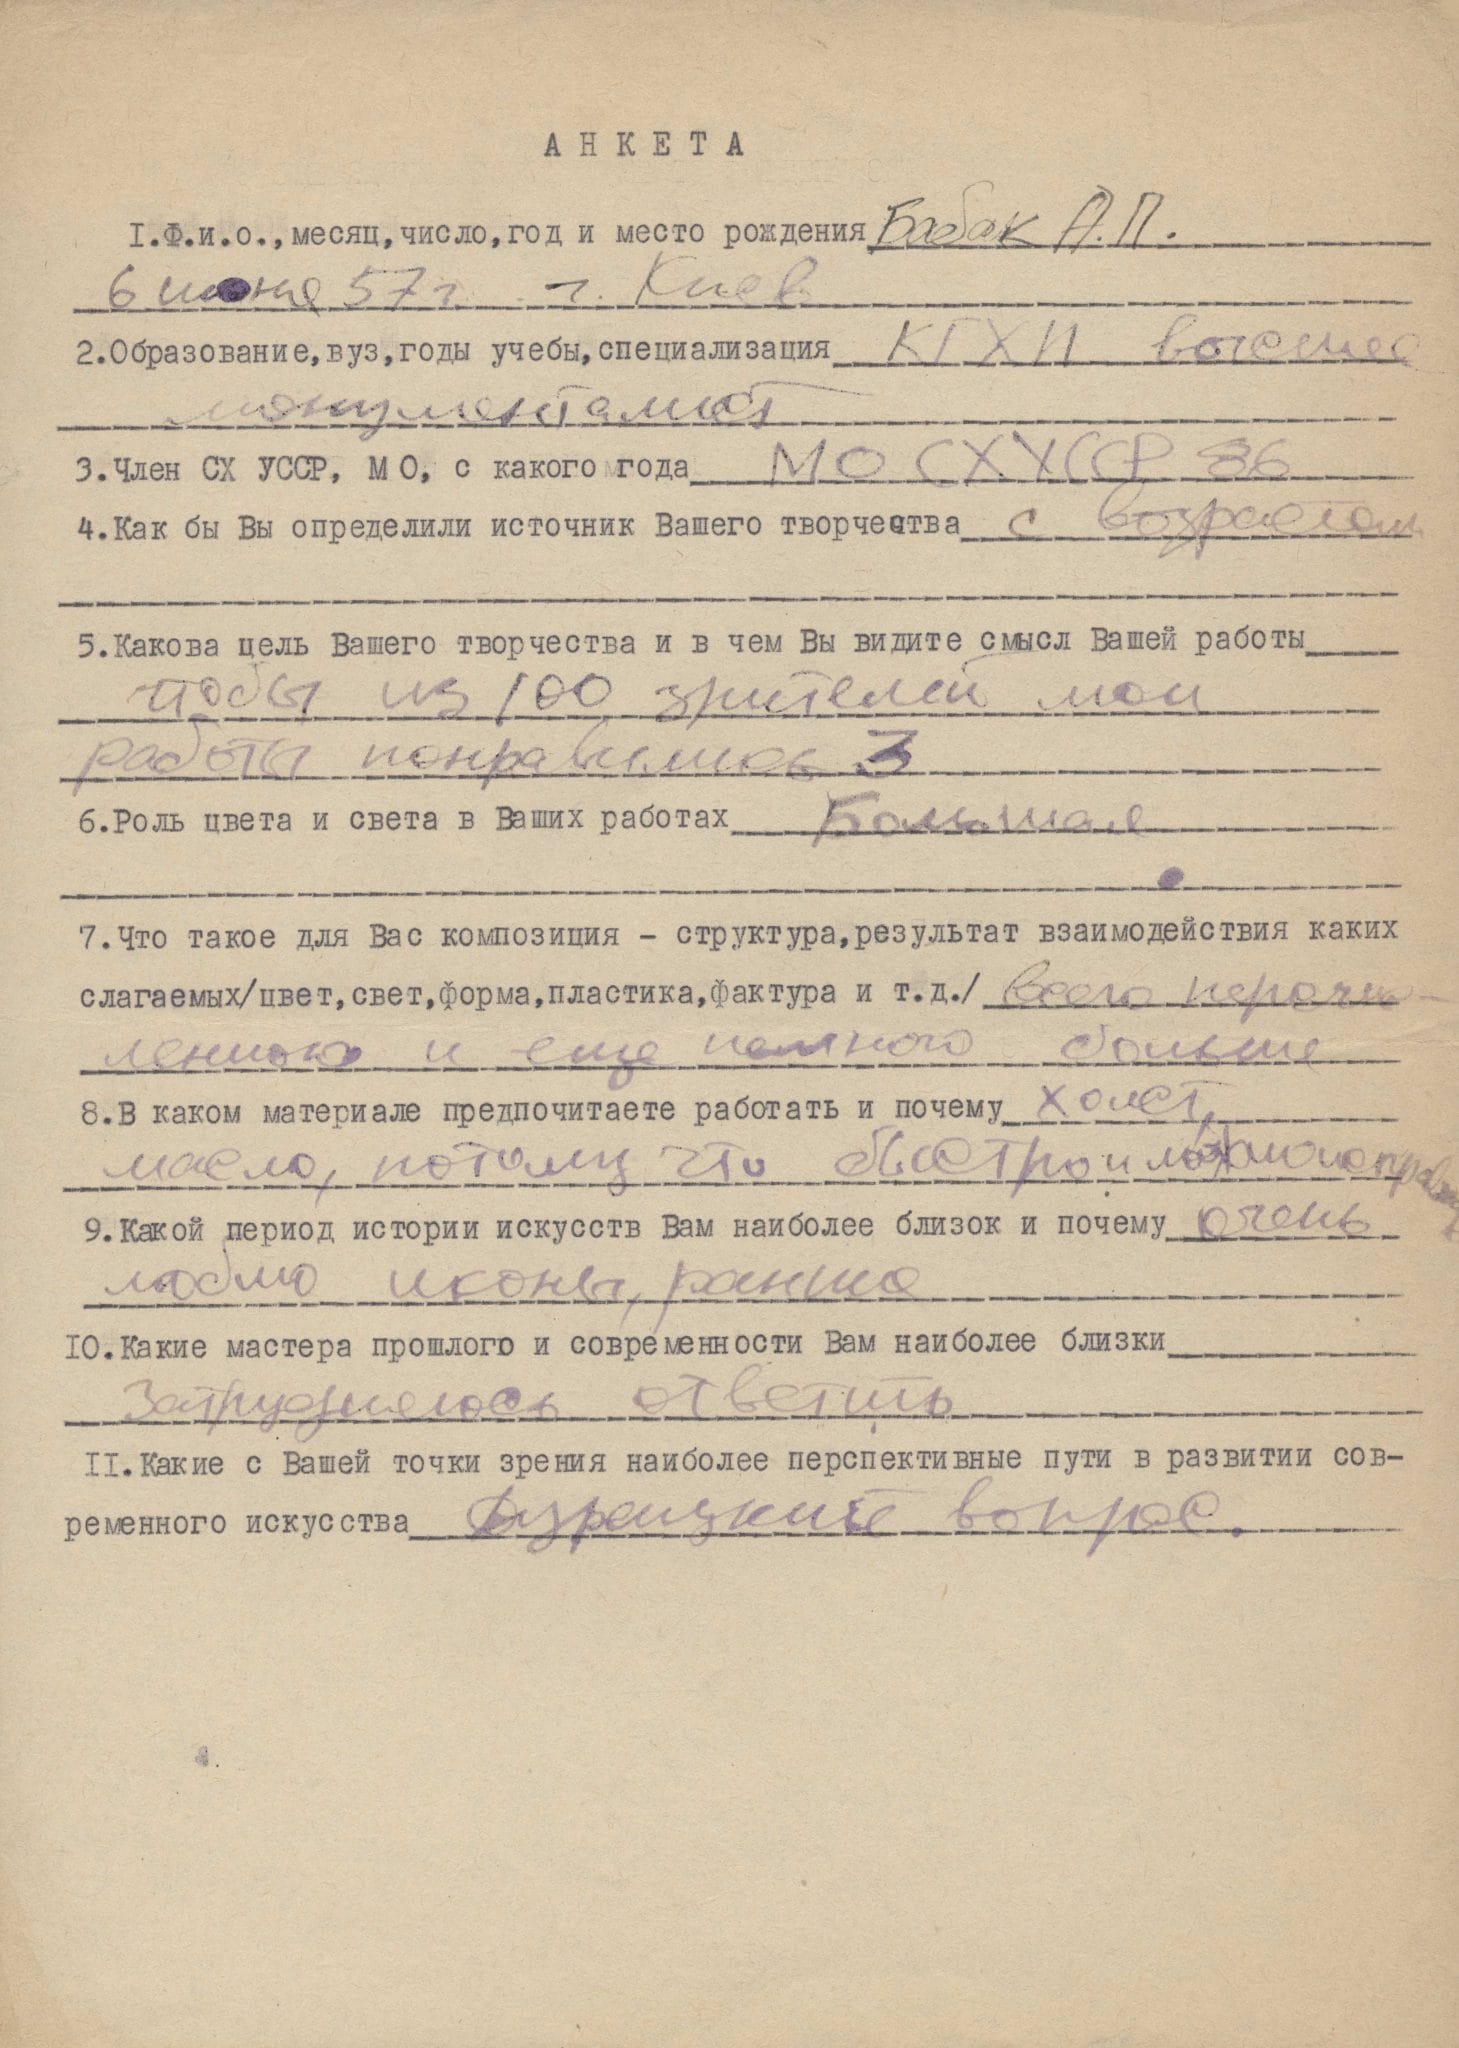 АНКЕТА
I.Ф.и.о.,месяц,число,год и место рождения Бабак А.П.
6 июня 57г. г. Киев
2.Образование,вуз,годы учебы,специализация КГХИ высшее
монументалист
3.Член СХ УССР, М О, с какого года МО СХ УССР 86
4.Как бы Вы определили источник Вашего творчества с возрастом
5.Какова цель Вашего творчества и в чем Вы видите смысл Вашей работы
чтобы из 100 зрителей мои
работы понравились 3
6.Роль цвета и света в Ваших работах Большая
7.Что такое для Вас композиция - структура,результат взаимодействия каких
слагаемых/цвет,свет,форма,пластика,фактура и т.д./ всего перечис-
ленного и еще немного больше
8.В каком материале предпочитаете работать и почему холст,
масло, потому что быстро и можно
9.Какой период истории искусств Вам наиболее близок и почему очень
люблю иконы, ранние
IO.Какие мастера прошлого и современности Вам наиболее близки
Затрудняюсь ответить
II.Какие с Вашей точки зрения наиболее перспективные пути в развитии сов-
ременного искусства Дурацкий вопрос.